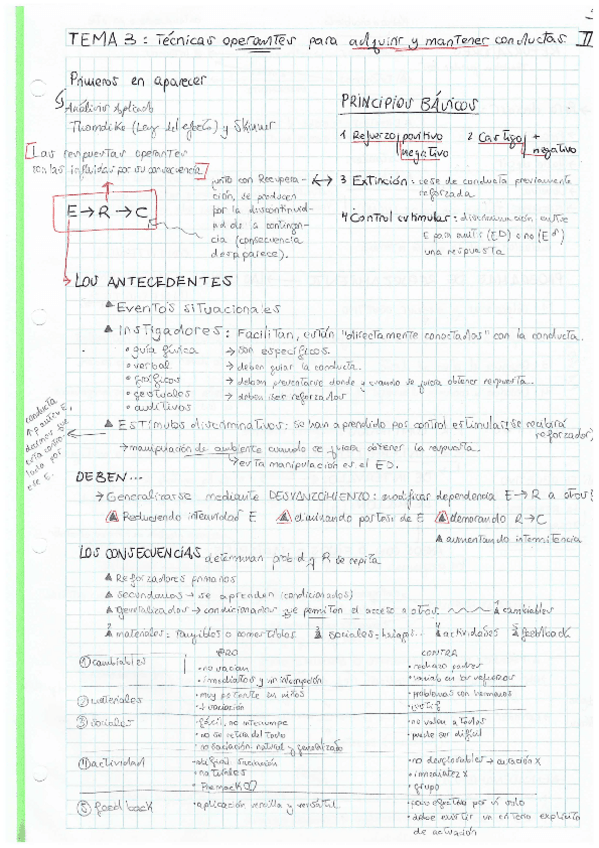 TEMA 3: Técnicas operantes para adquirir y mantener conductas II
Primeros en aparecer
Análisis Aplicado
Thorndike (Ley del efecto) y Skinner
Las respuestas operantes
son las influidas por su consecuencia
E → R → C
junto con Recupera-
ción, se producen
por la discontinui-
dad de la contingen-
cia (consecuencia
desaparece).
PRINCIPIOS BÁSICOS
1 Refuerzo positivo
negativo
2 Castigo +
negativo
3 Extinción: cese de conducta previamente
reforzada
4 Control estimular: discriminación entre
una respuesta
LOS ANTECEDENTES
Eventos situacionales
Instigadores: Facilitan, están "directamente conectados" con la conducta.
• guía física → son específicos.
• verbal → deben guiar la conducta.
• gráficos → deben presentarse donde y cuando se quiera obtener respuesta.
• gestuales → deben ser reforzados
• auditivos
Estímulos discriminativos: se van aprendiendo por control estimular (se recibirá
reforzador)
→ manipulación de ambiente cuando se quiere obtener la respuesta.
→ esta manipulación es el ED.
conducta
decimos que
está contro-
lada por
ese E.
DEBEN...
→ Generalizarse mediante DESVANECIMIENTO: modificar dependencia E→R a otros!
Reduciendo intensidad E
eliminando partes de E
demorando R→C
aumentando intermitencia
LAS CONSECUENCIAS determinan prob d q R se repita
Reforzadores primarios
secundarios → se aprenden (condicionados)
generalizados → condicionados que permiten el acceso a otros. 1 cambiables
2 materiales: tangibles o comestibles 3 sociales: halagos.. 4 actividades 5 feedback
PRO CONTRA
① cambiables
• no sacian • rechazo padres
• inmediatos y sin interrupción
② materiales
• muy potente en niños • problemas con hermanos
↓ variación
③ sociales
• fácil, no interrumpe • no valen a todos
• no se retira del todo • puede ser difícil
• no saciación, natural y generalizado
④ actividad
• difícil saciación
• naturales • inmediatez
• Premack • grupo
⑤ feedback
• aplicación sencilla y versátil • poco efectivo por sí solo
• debe existir un criterio explícito
de actuación